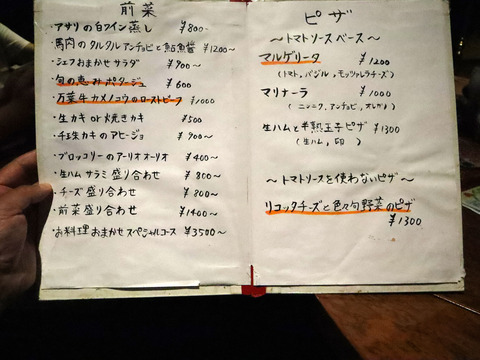 前菜
・アサリの白ワイン蒸し ¥800-
・馬肉のタルタル アンチョビと鮎魚醤 ¥1200~
・シェフおまかせサラダ ¥900~
・旬の恵みポタージュ ¥600
・万葉牛カメノコウのローストビーフ ¥1000
・生カキ or 焼きカキ ¥500
・牡蛎カキのアヒージョ ¥900~
・ブロッコリーのアーリオオーリオ ¥400~
・生ハム サラミ 盛り合わせ ¥800~
・チーズ盛り合わせ ¥800~
・前菜盛り合わせ ¥1400~
・お料理おまかせスペシャルコース ¥3500~
ピザ
~トマトソースベース~
マルゲリータ ¥1200
(トマト、バジル、モッツァレラチーズ)
マリナーラ ¥1000
(ニンニク、アンチョビ、オレガノ)
生ハムと半熟玉子ピザ ¥1300
(生ハム、卵)
~トマトソースを使わないピザ~
リコッタチーズと色々旬野菜のピザ
¥1300